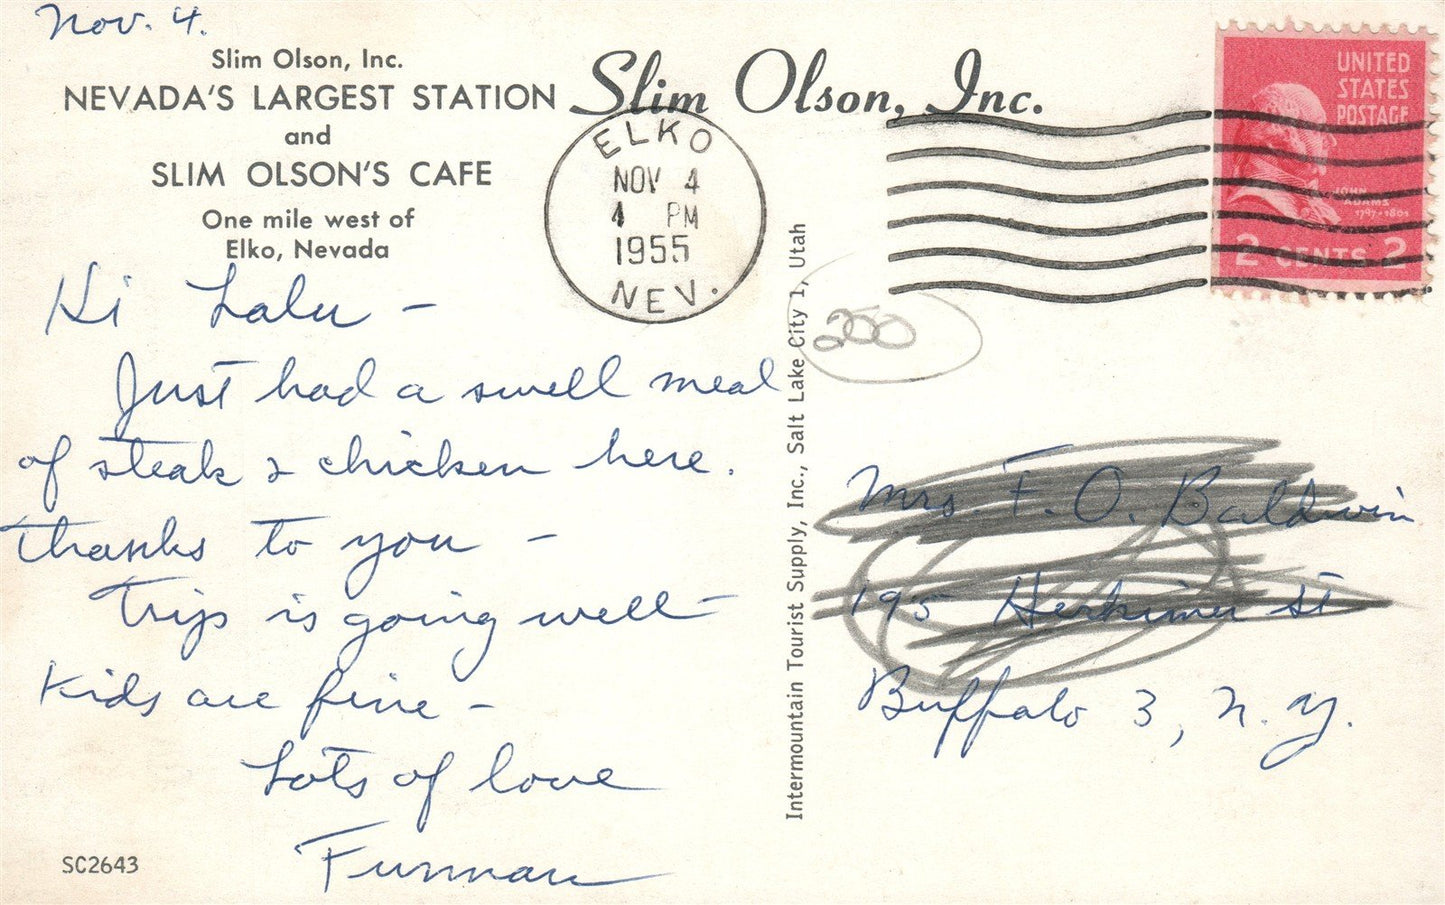 Nov. 4.
Slim Olson, Inc.
NEVADA'S LARGEST STATION
and
SLIM OLSON'S CAFE
One mile west of
Elko, Nevada
Slim Olson, Inc.
ELKO
NOV 4
4 PM
1955
NEV.
UNITED
STATES
POSTAGE
JOHN
ADAMS
1797-1801
2 CENTS 2
Hi Lalu -
Just had a swell meal
of steak & chicken here.
Thanks to you -
Trip is going well -
Kids are fine -
Lots of love
Furman
SC2643
Intermountain Tourist Supply, Inc., Salt Lake City 1, Utah
200
Mrs. F. O. Baldwin
195 Herkimer St
Buffalo 3, N. Y.